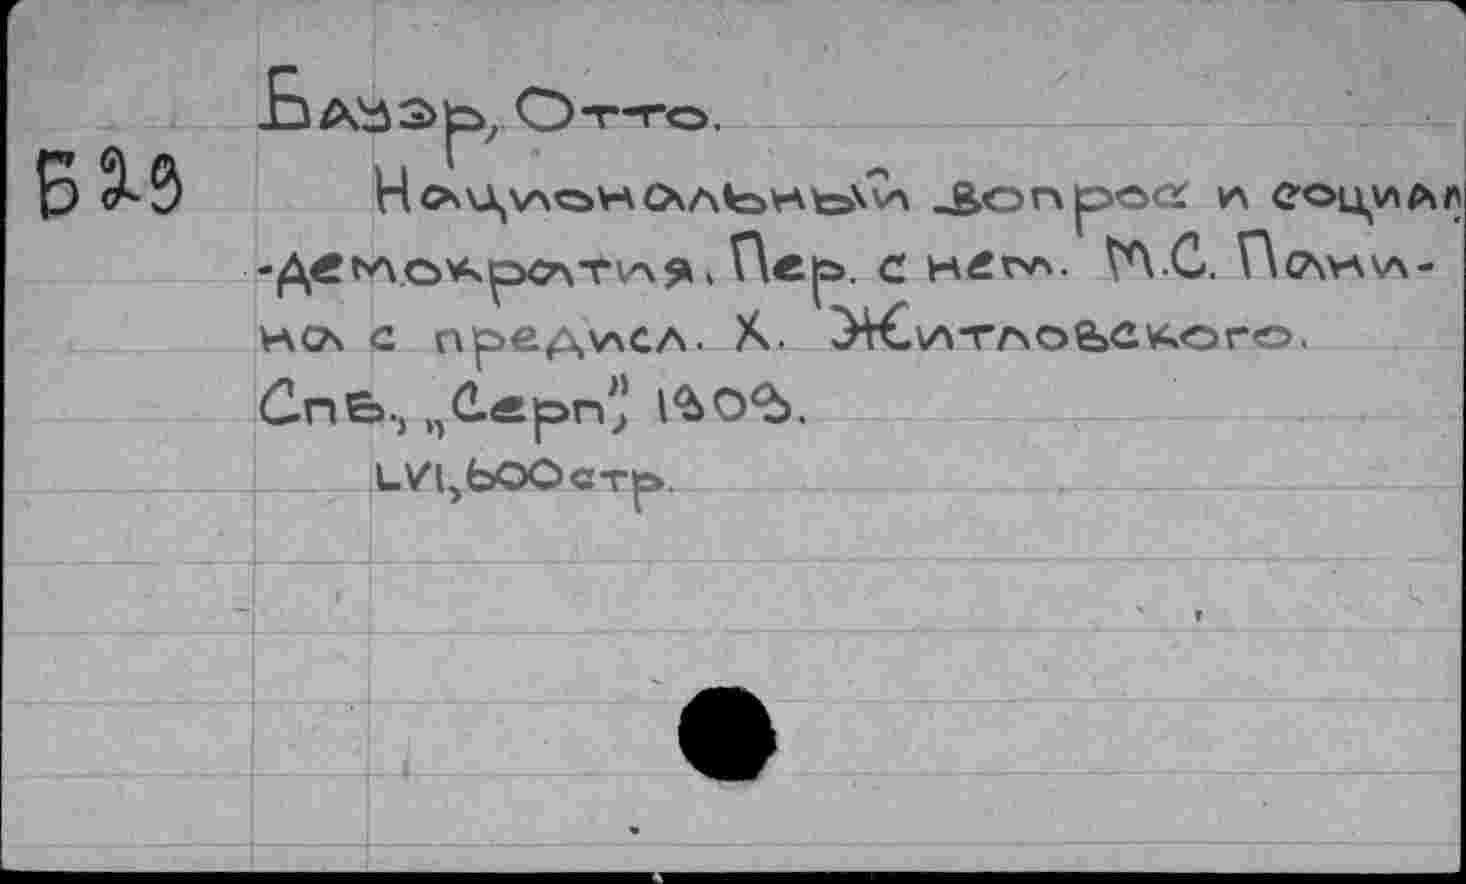 Бауэр, Отто.
Б29
Национальный вопрос и социал
-демократия. Пер. с нем. М.С. Пани-
на с предисл. Х. Житловского.
Спб., „Серп", 1909.
LVI, 600 стр.